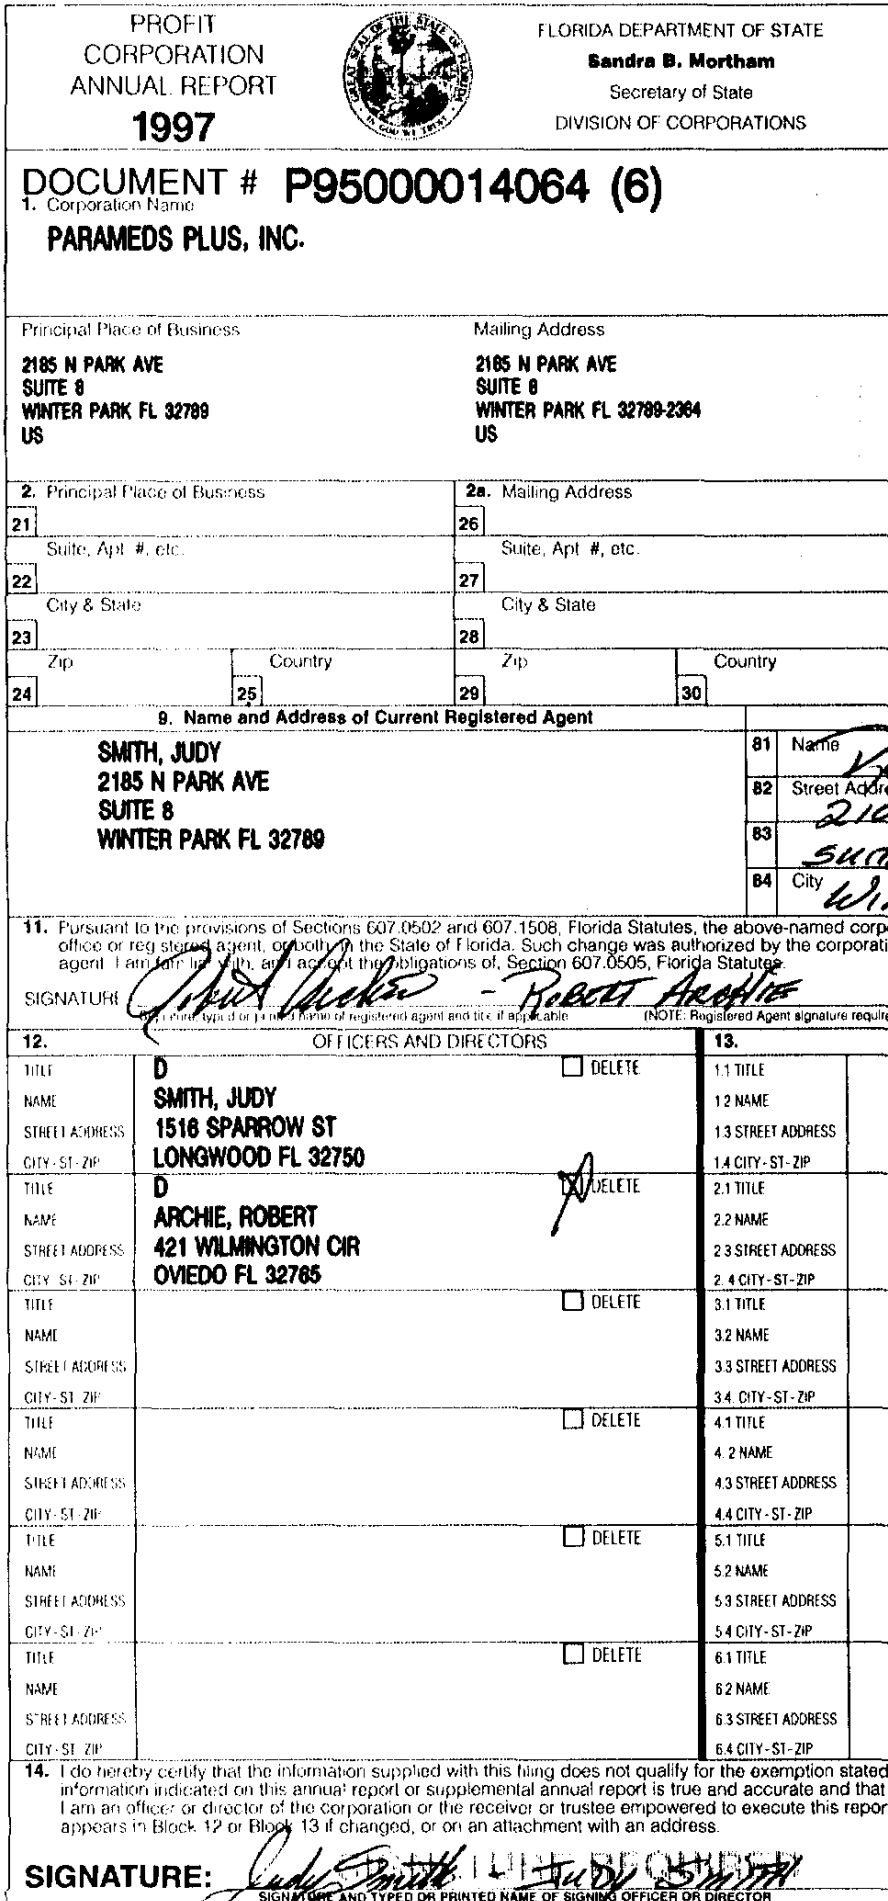 PROFIT
CORPORATION
ANNUAL REPORT
1997
GREAT SEAL OF THE STATE OF FLORIDA
IN GOD WE TRUST
FLORIDA DEPARTMENT OF STATE
Sandra B. Mortham
Secretary of State
DIVISION OF CORPORATIONS
DOCUMENT # P95000014064 (6)
1. Corporation Name
PARAMEDS PLUS, INC.
Principal Place of Business
2185 N PARK AVE
SUITE 8
WINTER PARK FL 32789
US
Mailing Address
2185 N PARK AVE
SUITE 8
WINTER PARK FL 32789-2364
US
2. Principal Place of Business
21
Suite, Apt. #, etc.
22
City & State
23
Zip
24
Country
25
2a. Mailing Address
26
Suite, Apt. #, etc.
27
City & State
28
Zip
29
Country
30
9. Name and Address of Current Registered Agent
SMITH, JUDY
2185 N PARK AVE
SUITE 8
WINTER PARK FL 32789
81 Name
82 Street Addre
210
83
84 City
11. Pursuant to the provisions of Sections 607.0502 and 607.1508, Florida Statutes, the above-named corp
office or registered agent, or both, in the State of Florida. Such change was authorized by the corporati
agent. I am familiar with, and accept the obligations of, Section 607.0505, Florida Statutes.
SIGNATURE Robert Archie - ROBERT ARCHIE
Signature, typed or printed name of registered agent and title if applicable (NOTE: Registered Agent signature require
12. OFFICERS AND DIRECTORS
13.
TITLE D DELETE 1.1 TITLE
NAME SMITH, JUDY 1.2 NAME
STREET ADDRESS 1516 SPARROW ST 1.3 STREET ADDRESS
CITY-ST-ZIP LONGWOOD FL 32750 1.4 CITY-ST-ZIP
TITLE D X DELETE 2.1 TITLE
NAME ARCHIE, ROBERT 2.2 NAME
STREET ADDRESS 421 WILMINGTON CIR 2.3 STREET ADDRESS
CITY-ST-ZIP OVIEDO FL 32765 2.4 CITY-ST-ZIP
TITLE DELETE 3.1 TITLE
NAME 3.2 NAME
STREET ADDRESS 3.3 STREET ADDRESS
CITY-ST-ZIP 3.4. CITY-ST-ZIP
TITLE DELETE 4.1 TITLE
NAME 4.2 NAME
STREET ADDRESS 4.3 STREET ADDRESS
CITY-ST-ZIP 4.4 CITY-ST-ZIP
TITLE DELETE 5.1 TITLE
NAME 5.2 NAME
STREET ADDRESS 5.3 STREET ADDRESS
CITY-ST-ZIP 5.4 CITY-ST-ZIP
TITLE DELETE 6.1 TITLE
NAME 6.2 NAME
STREET ADDRESS 6.3 STREET ADDRESS
CITY-ST-ZIP 6.4 CITY-ST-ZIP
14. I do hereby certify that the information supplied with this filing does not qualify for the exemption stated
information indicated on this annual report or supplemental annual report is true and accurate and that
I am an officer or director of the corporation or the receiver or trustee empowered to execute this repor
appears in Block 12 or Block 13 if changed, or on an attachment with an address.
SIGNATURE: Judy Smith - JUDY SMITH
SIGNATURE AND TYPED OR PRINTED NAME OF SIGNING OFFICER OR DIRECTOR